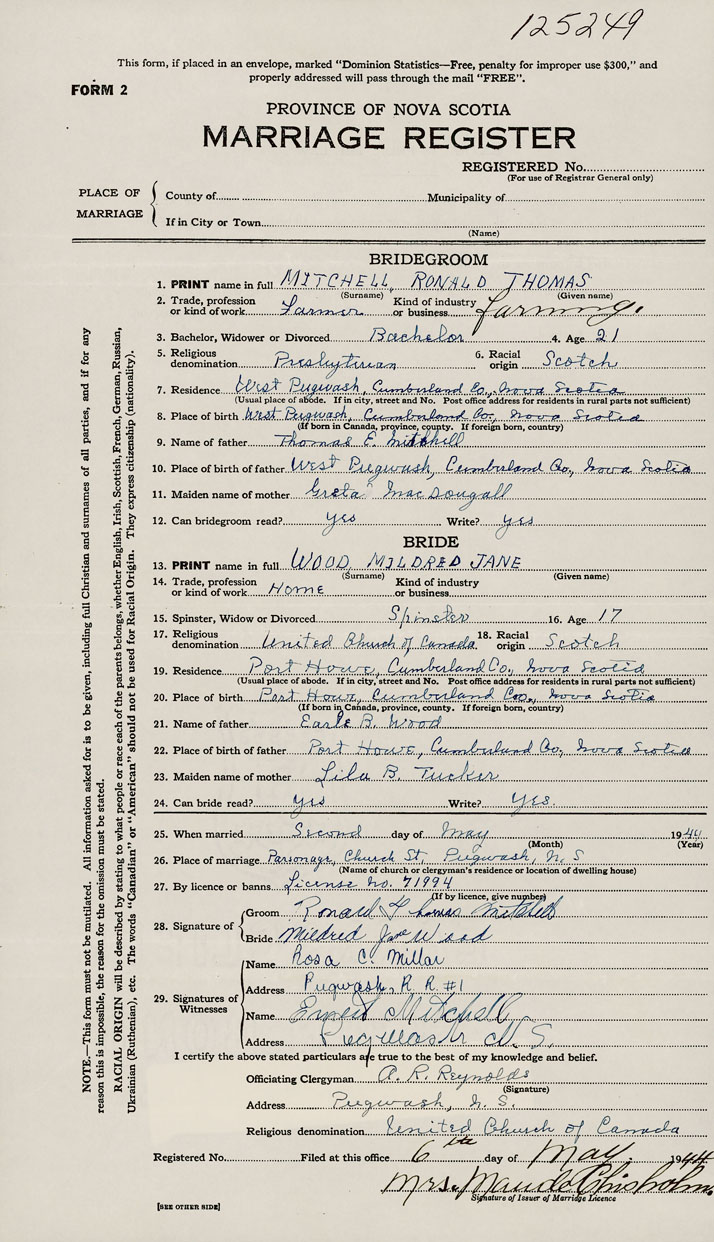 125249
This form, if placed in an envelope, marked "Dominion Statistics—Free, penalty for improper use $300," and
properly addressed will pass through the mail "FREE".
FORM 2
PROVINCE OF NOVA SCOTIA
MARRIAGE REGISTER
REGISTERED No.
(For use of Registrar General only)
PLACE OF MARRIAGE
County of Municipality of
If in City or Town
(Name)
BRIDEGROOM
1. PRINT name in full MITCHELL, RONALD THOMAS
(Surname) (Given name)
2. Trade, profession or kind of work Farmer Kind of industry or business farming.
3. Bachelor, Widower or Divorced Bachelor 4. Age 21
5. Religious denomination Presbyterian 6. Racial origin Scotch
7. Residence West Pugwash, Cumberland Co., Nova Scotia
(Usual place of abode. If in city, street and No. Post office address for residents in rural parts not sufficient)
8. Place of birth West Pugwash, Cumberland Co., Nova Scotia
(If born in Canada, province, county. If foreign born, country)
9. Name of father Thomas E. Mitchell
10. Place of birth of father West Pugwash, Cumberland Co., Nova Scotia
11. Maiden name of mother Greta MacDougall
12. Can bridegroom read? yes Write? yes
BRIDE
13. PRINT name in full WOOD, MILDRED JANE
(Surname) (Given name)
14. Trade, profession or kind of work HOME Kind of industry or business
15. Spinster, Widow or Divorced Spinster 16. Age 17
17. Religious denomination United Church of Canada 18. Racial origin Scotch
19. Residence Port Howe, Cumberland Co., Nova Scotia
(Usual place of abode. If in city, street and No. Post office address for residents in rural parts not sufficient)
20. Place of birth Port Howe, Cumberland Co., Nova Scotia
(If born in Canada, province, county. If foreign born, country)
21. Name of father Earle B. Wood
22. Place of birth of father Port Howe, Cumberland Co, Nova Scotia
23. Maiden name of mother Lila B. Tucker
24. Can bride read? yes Write? yes.
25. When married Second day of May 1944
(Month) (Year)
26. Place of marriage Parsonage, Church St, Pugwash, N. S
(Name of church or clergyman's residence or location of dwelling house)
27. By licence or banns License no. 71994
(If by licence, give number)
28. Signature of
Groom Ronald Thomas Mitchell
Bride Mildred Jane Wood
29. Signatures of Witnesses
Name Rosa C. Millar
Address Pugwash, R. R. #1
Name Ernest Mitchell
Address Pugwash N. S.
I certify the above stated particulars are true to the best of my knowledge and belief.
Officiating Clergyman A. R. Reynolds
(Signature)
Address Pugwash, N. S.
Religious denomination United Church of Canada
Registered No. Filed at this office 6th day of May. 1944
Mrs. Maude Chisholm.
Signature of Issuer of Marriage Licence
[SEE OTHER SIDE]
NOTE.—This form must not be mutilated. All information asked for is to be given, including full Christian and surnames of all parties, and if for any
reason this is impossible, the reason for the omission must be stated.
RACIAL ORIGIN will be described by stating to what people or race each of the parents belongs, whether English, Irish, Scottish, French, German, Russian,
Ukrainian (Ruthenian), etc. The words "Canadian" or "American" should not be used for Racial Origin. They express citizenship (nationality).